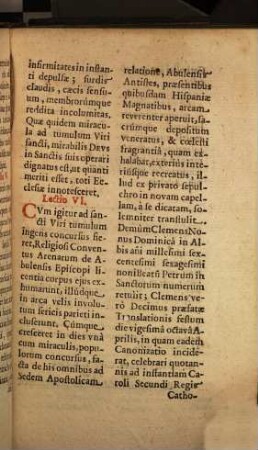 infirmitates in instan
ti depulsæ; surdis
claudis, cæcis sensu
um, membrorumque
reddita incolumitas.
Quæ quidem miracu
la ad tumulum Viri
sancti, mirabilis Deus
in Sanctis suis operari
dignatus est, ut quanti
meriti esset, toti Ec
clesiæ innotesceret.
Lectio VI.
CVm igitur ad san
cti Viri tumulum
Ingens concursus fie
ret, Religiosi Conven
tus Arenarum de A
bulensis Episcopi li
centia corpus ejus ex
humarunt, illudque
in arca velis involu
tum sericis parieti in
cluserunt. Cumque
crescéret in dies vnà
cum miraculis, popu
lorum concursus, fa
cta de his omnibus ad
Sedem Apostolicam
relatione, Abulensis
Antistes, præsentibus
quibusdam Hispaniæ
Magnatibus, arcam
reverenter aperuit, sa
crumque depositum
veneratus, & cœlesti
fragrantiâ, quam ex
halabat, exteriùs inte
riusque recreatus, il
lud ex privato sepul
chro in novam capel
lam, à se dicatam, so
lemniter transtulit.
Demùm Clemens No
nus Dominicâ in Al
bis añi millesimi sex
centesimi sexagesimi
noni Beatũ Petrum in
Sanctorum numerum
retulit; Clemens verò
Decimus præfatæ
Translationis festum
die vigesimâ octavâ A
prilis, in quam eadem
Canonizatio incide
rat, celebrari quotan
nis ad instantiam Ca
roli Secundi Regis
Catho-